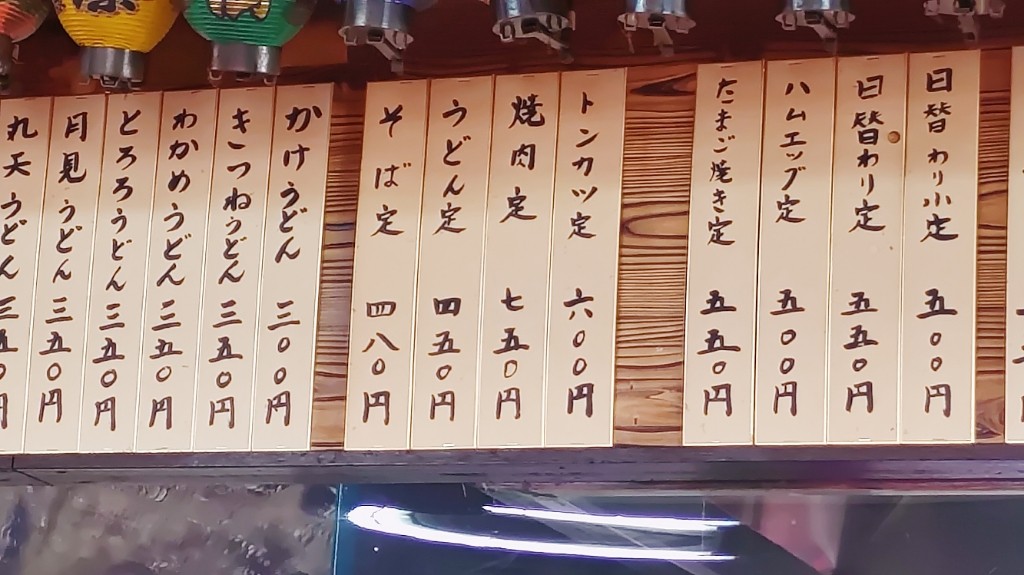 日替わり小定 五００円
日替わり定 五五０円
ハムエッグ定 五００円
たまご焼き定 五五０円
トンカツ定 六００円
焼肉定 七五０円
うどん定 四五０円
そば定 四八０円
かけうどん 三００円
きつねうどん 三五０円
わかめうどん 三五０円
とろろうどん 三五０円
月見うどん 三五０円
丸天うどん 三五０円